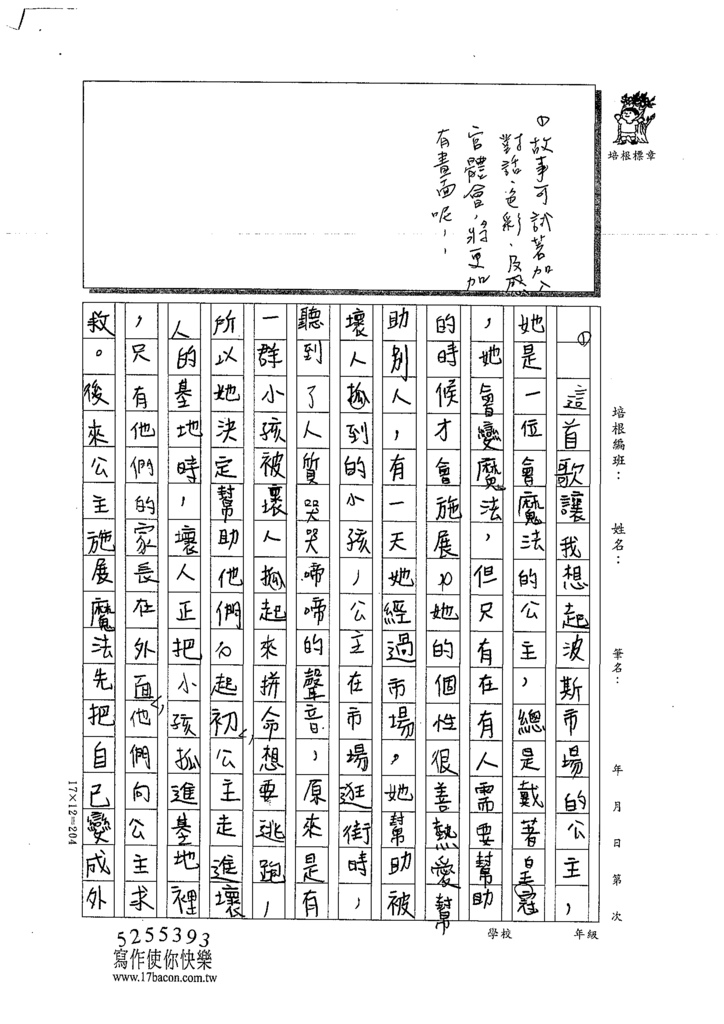 培根標章
①故事可試著加入
對話、色彩、及感
官體會,將更加
有畫面呢!
培根編班： 姓名： 筆名： 年 月 日 第 次
學校 年級
①
這首歌讓我想起波斯市場的公主,
她是一位會魔法的公主,總是戴著皇冠
,她會變魔法,但只有在有人需要幫助
的時候才會施展。她的個性很善熱愛幫
助別人,有一天她經過市場,她幫助被
壞人抓到的小孩,公主在市場逛街時,
聽到了人質哭哭啼啼的聲音,原來是有
一群小孩被壞人抓起來拼命想要逃跑,
所以她決定幫助他們。起初,公主走進壞
人的基地時,壞人正把小孩抓進基地裡
,只有他們的家長在外面,他們向公主求
救。後來公主施展魔法先把自己變成外
17×12=204
5255393
寫作使你快樂
www.17bacon.com.tw